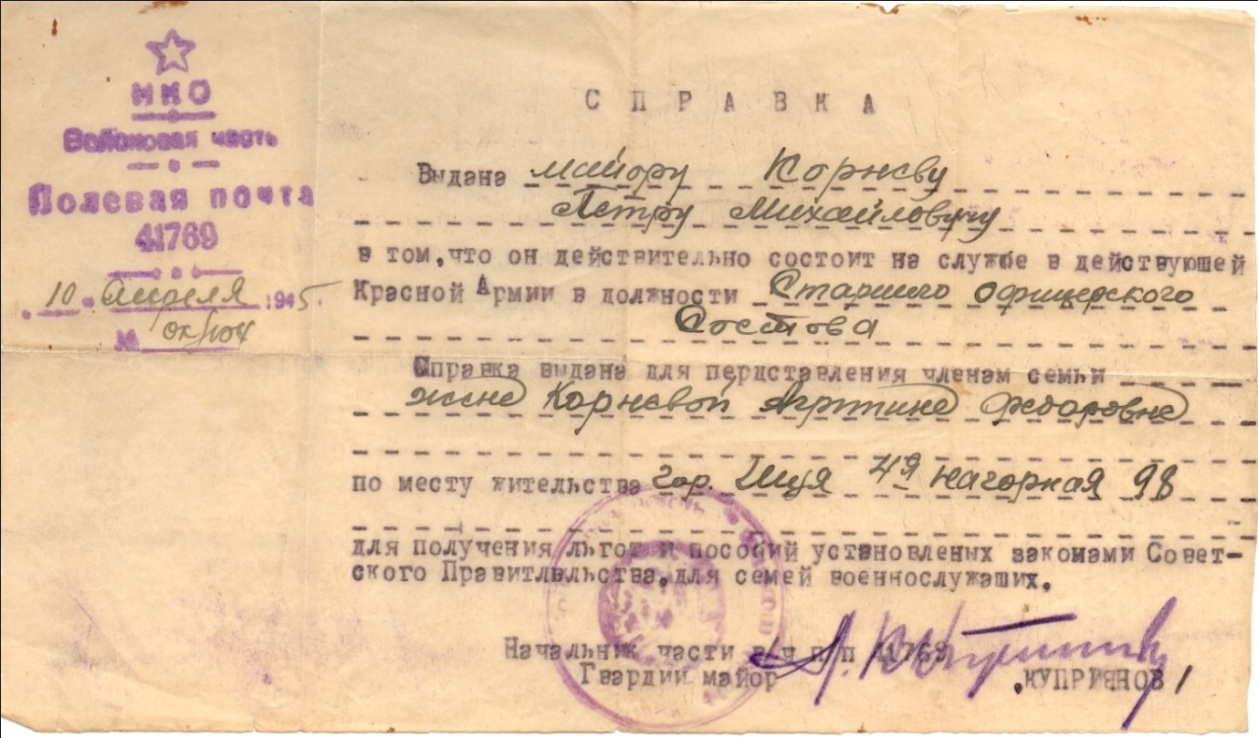 НКО
Войсковая часть
Полевая почта
41769
"10" апреля 1945
№
СПРАВКА
Выдана майору Корневу
Петру Михайловичу
в том, что он действительно состоит на службе в действуюшей
Красной Армии в должности Старшего офицерского
Состова
Справка выдана для пердставления членам семьи
жене Корневой Федоровне
по месту жительства гор. Шуя 4я Нагорная 98
для получения льгот и пособий установленых законами Совет-
ского Правитлвльства, для семей военнослужаших.
Начальник части в/ч п/п 41769
Гвардии майор КУПРИЯНОВ